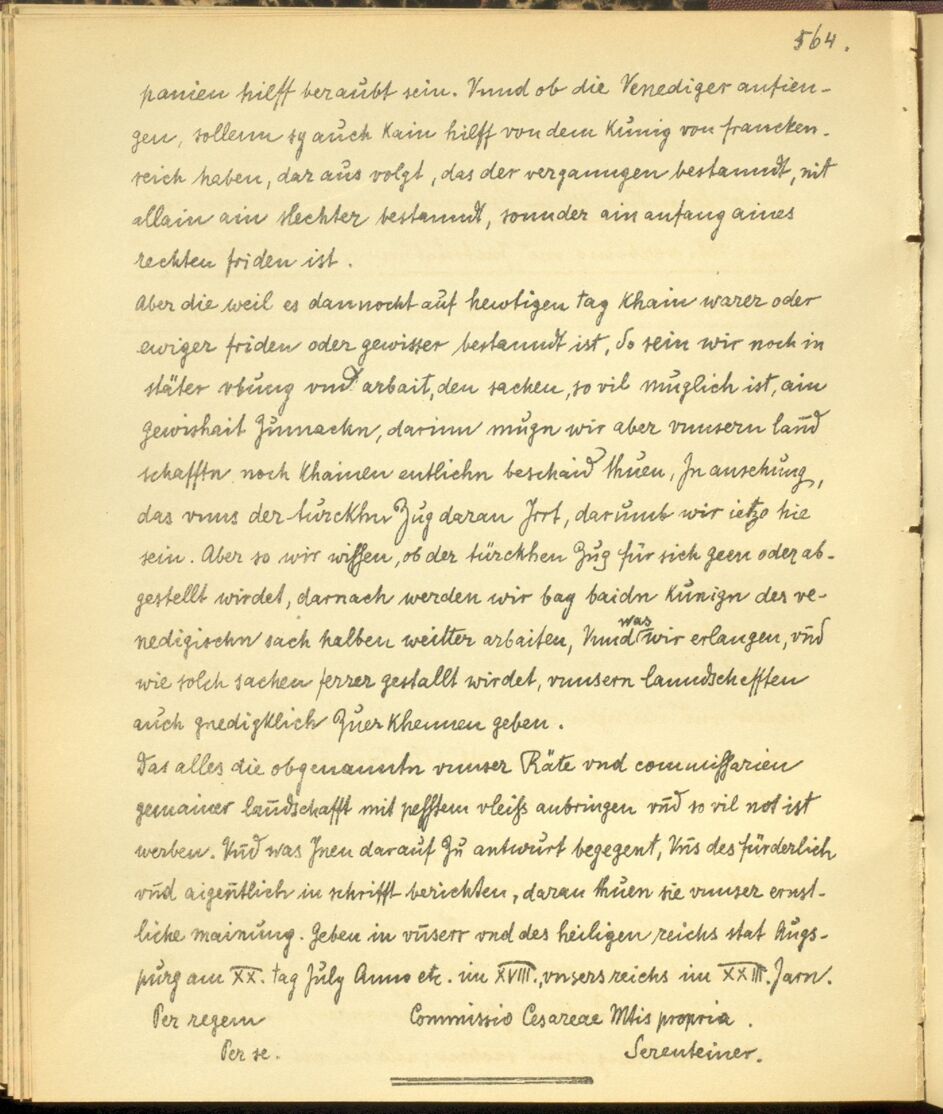 564.
panien hilff beraubt sein. Vnnd ob die Venediger anfien-
gen, sollenn sy auch kain hilff von dem Künig von francken-
reich haben, dar aus volgt, das der vergangen bestanndt, nit
allain ain slechter bestanndt, sonnder ain anfang aines
rechten friden ist.
Aber die weil es dannocht auf hewtigen tag khain warer oder
ewiger friden oder gewisser bestanndt ist, So sein wir noch in
stäter vbung vnd arbait, den sachen, so vil muglich ist, ain
gewishait Zumachn, darinn mugn wir aber vnnsern lannd
schafftn noch khainen entlichn beschaid thuen, In ansehung,
das vnns der türckhn Zug daran Irrt, darumb wir ietzo hie
sein. Aber so wir wissen, ob der türckhen Zug für sich geen oder ab-
gestellt wirdet, darnach werden wir bay baidn Künign des ve-
nedigischn sach halben weitter arbaiten, Vnnd was wir erlangen, vnd
wie solch sachen ferrer gestallt wirdet, vnnsern lanndschefften
auch gnedigklich Zuerkhennen geben.
Das alles die obgenanntn vnnser Räte vnd commissarien
gemainer landschafft mit pesstem vleiss anbringen vnd so vil not ist
werben. Vnd was Inen darauf Zu antwurt begegent, Vns des fürderlich
vnd aigentlich in schrifft berichten, daran thuen sie vnnser ernst-
liche mainung. Geben in vnserr vnd des heiligen reichs stat Augs-
purg am XX. tag July Anno etc. im XVIII., vnsers reichs im XXIII. Jarn.
Per regem Commissio Cesareae Mtis propria.
Per se. Serenteiner.